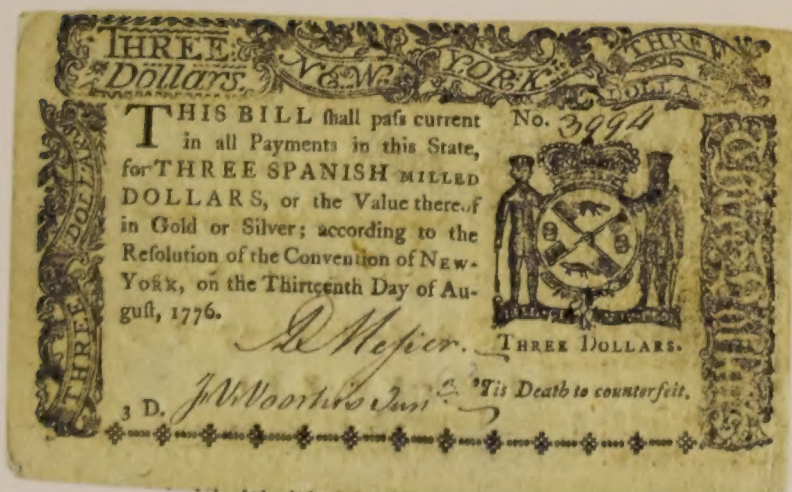 THREE
Dollars.
NEW
YORK
THREE
DOLLARS
THIS BILL ſhall paſs current
in all Payments in this State,
for THREE SPANISH MILLED
DOLLARS, or the Value thereof
in Gold or Silver; according to the
Reſolution of the Convention of NEW-
YORK, on the Thirteenth Day of Au-
guſt, 1776.
No. 3994
THREE DOLLARS.
'Tis Death to counterfeit.
3 D.
THREE
DOLLARS